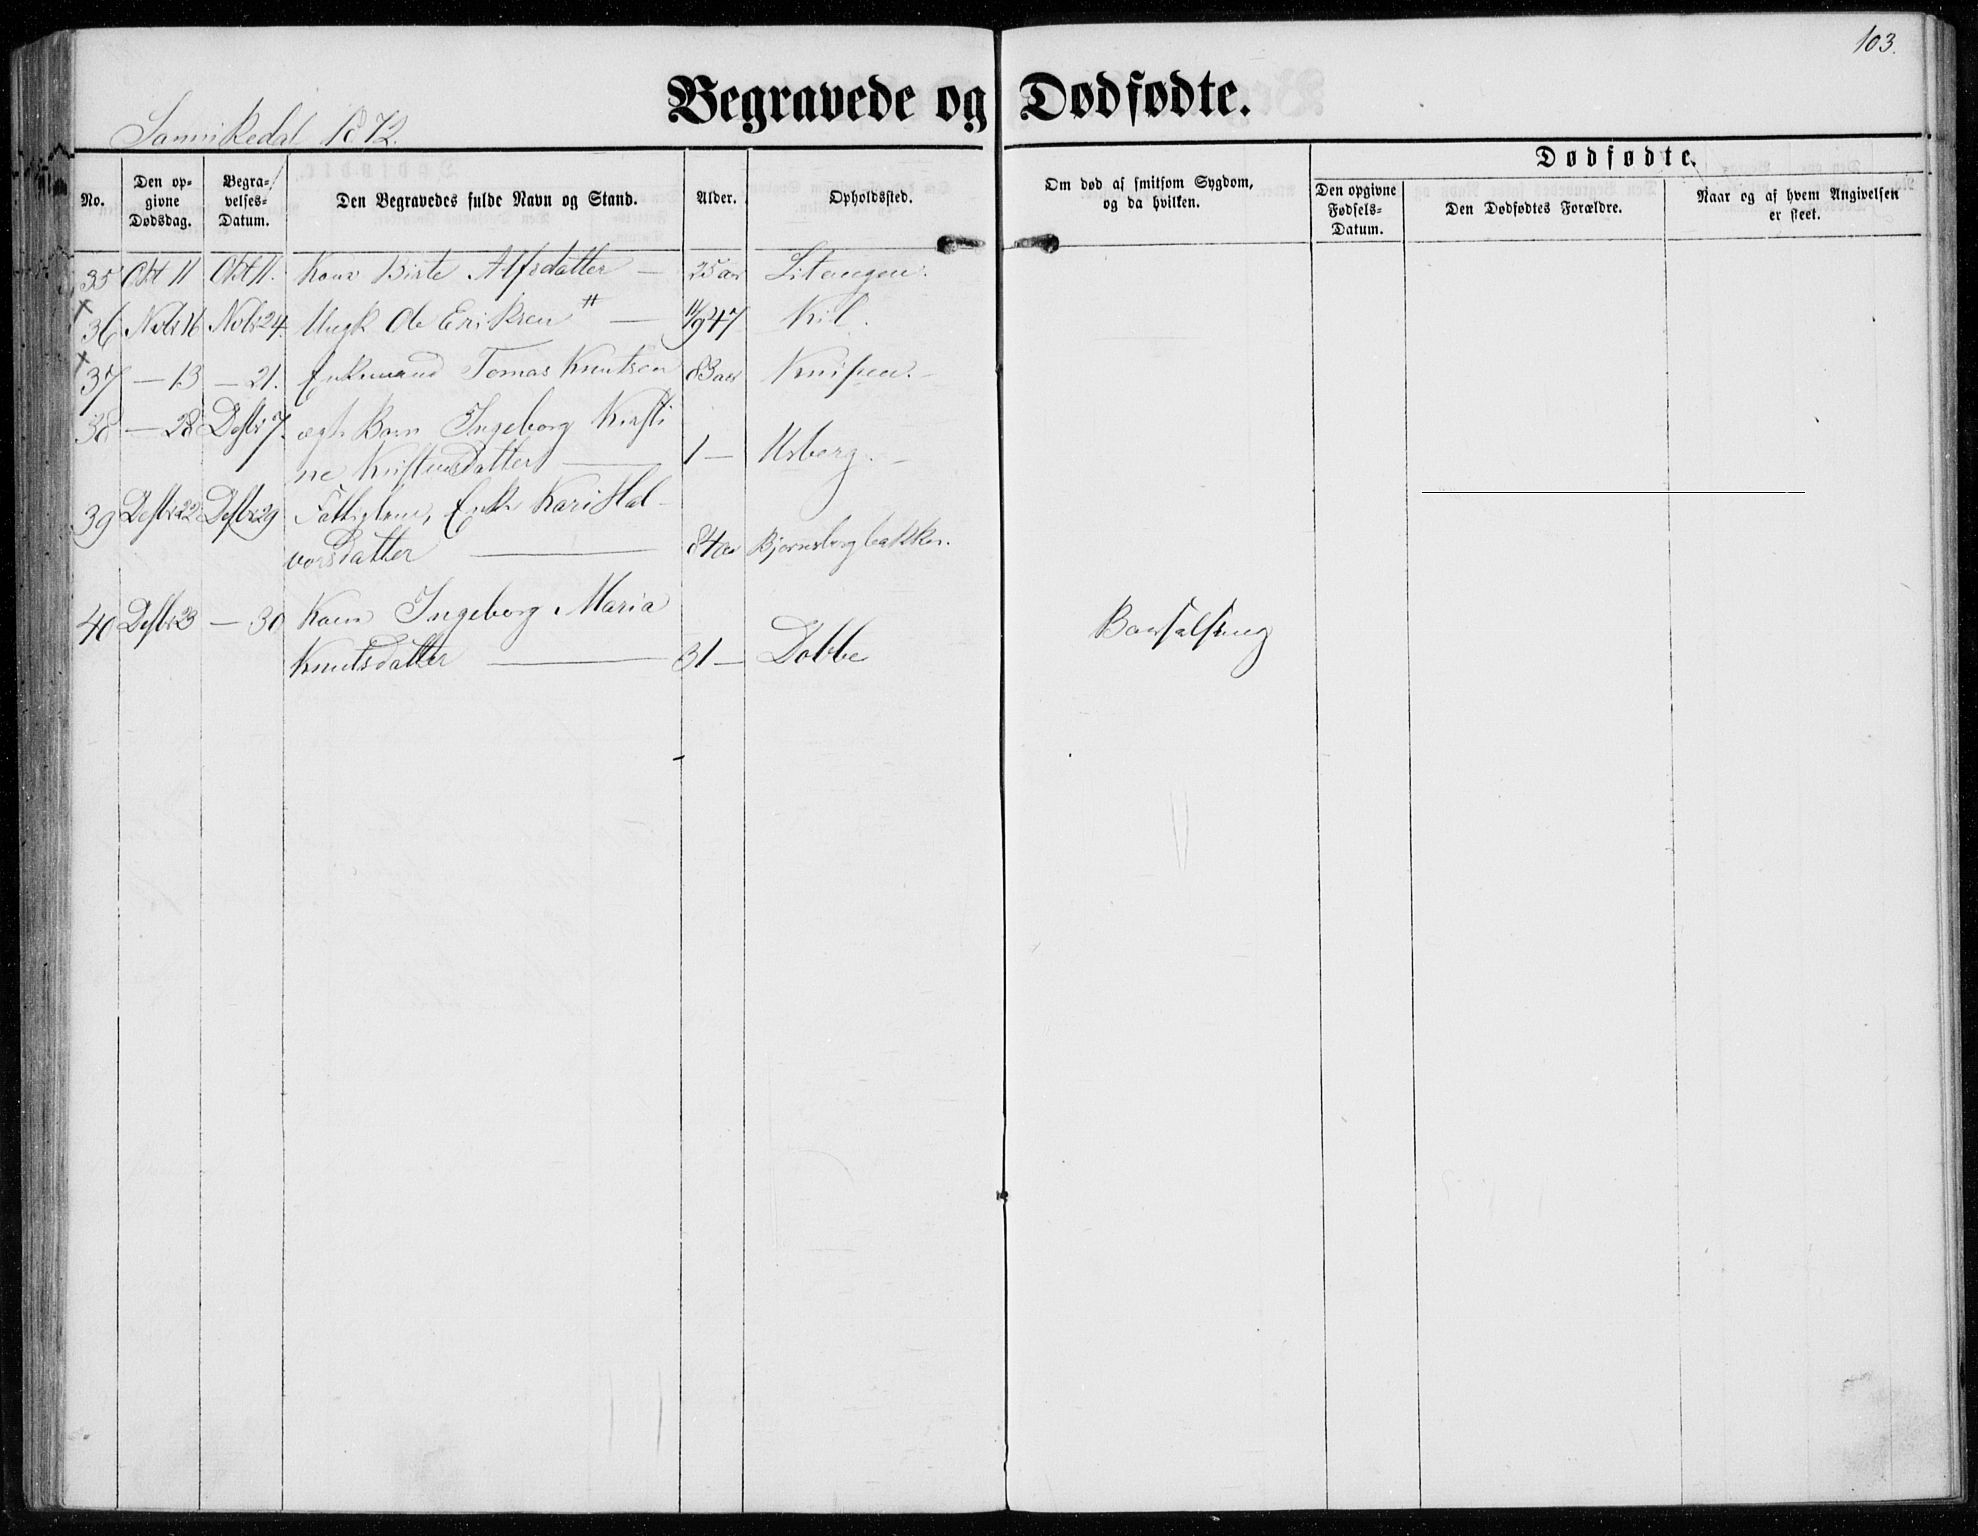 103.
Begravede og Dødfødte.
Sannikedal 1872.
Dødfødte.
No.
Den op-
givne
Dødsdag.
Begra-
velses-
Datum.
Den Begravedes fulde Navn og Stand.
Alder.
Opholdssted.
Om død af smitsom Sygdom,
og da hvilken.
Den opgivne
Fødsels-
Datum.
Den Dødfødtes Forældre.
Naar og af hvem Angivelsen
er skeet.
35 Okt 11 Okt 11. Kone Birte Alfsdatter — 25 aar
36 Novbr 16 Novbr 24. Ungk Ole Eriksen — 11/9 47 Kil.
37 — 13 — 21. Enkemand Tomas Knutsen 83 aar Knipen.
38 — 28 Desbr 7. ægte Barn Ingeborg Kirsti
ne Kristensdatter — 1 —
39 Desbr 22 Desbr 29 Fattiglem, Enke Kari Hal-
vorsdatter — 84 aar Bjørnsborgbakken.
40 Desbr 23 — 30 Kone Ingeborg Maria
Knutsdatter — 31 — Dobbe Barselseng